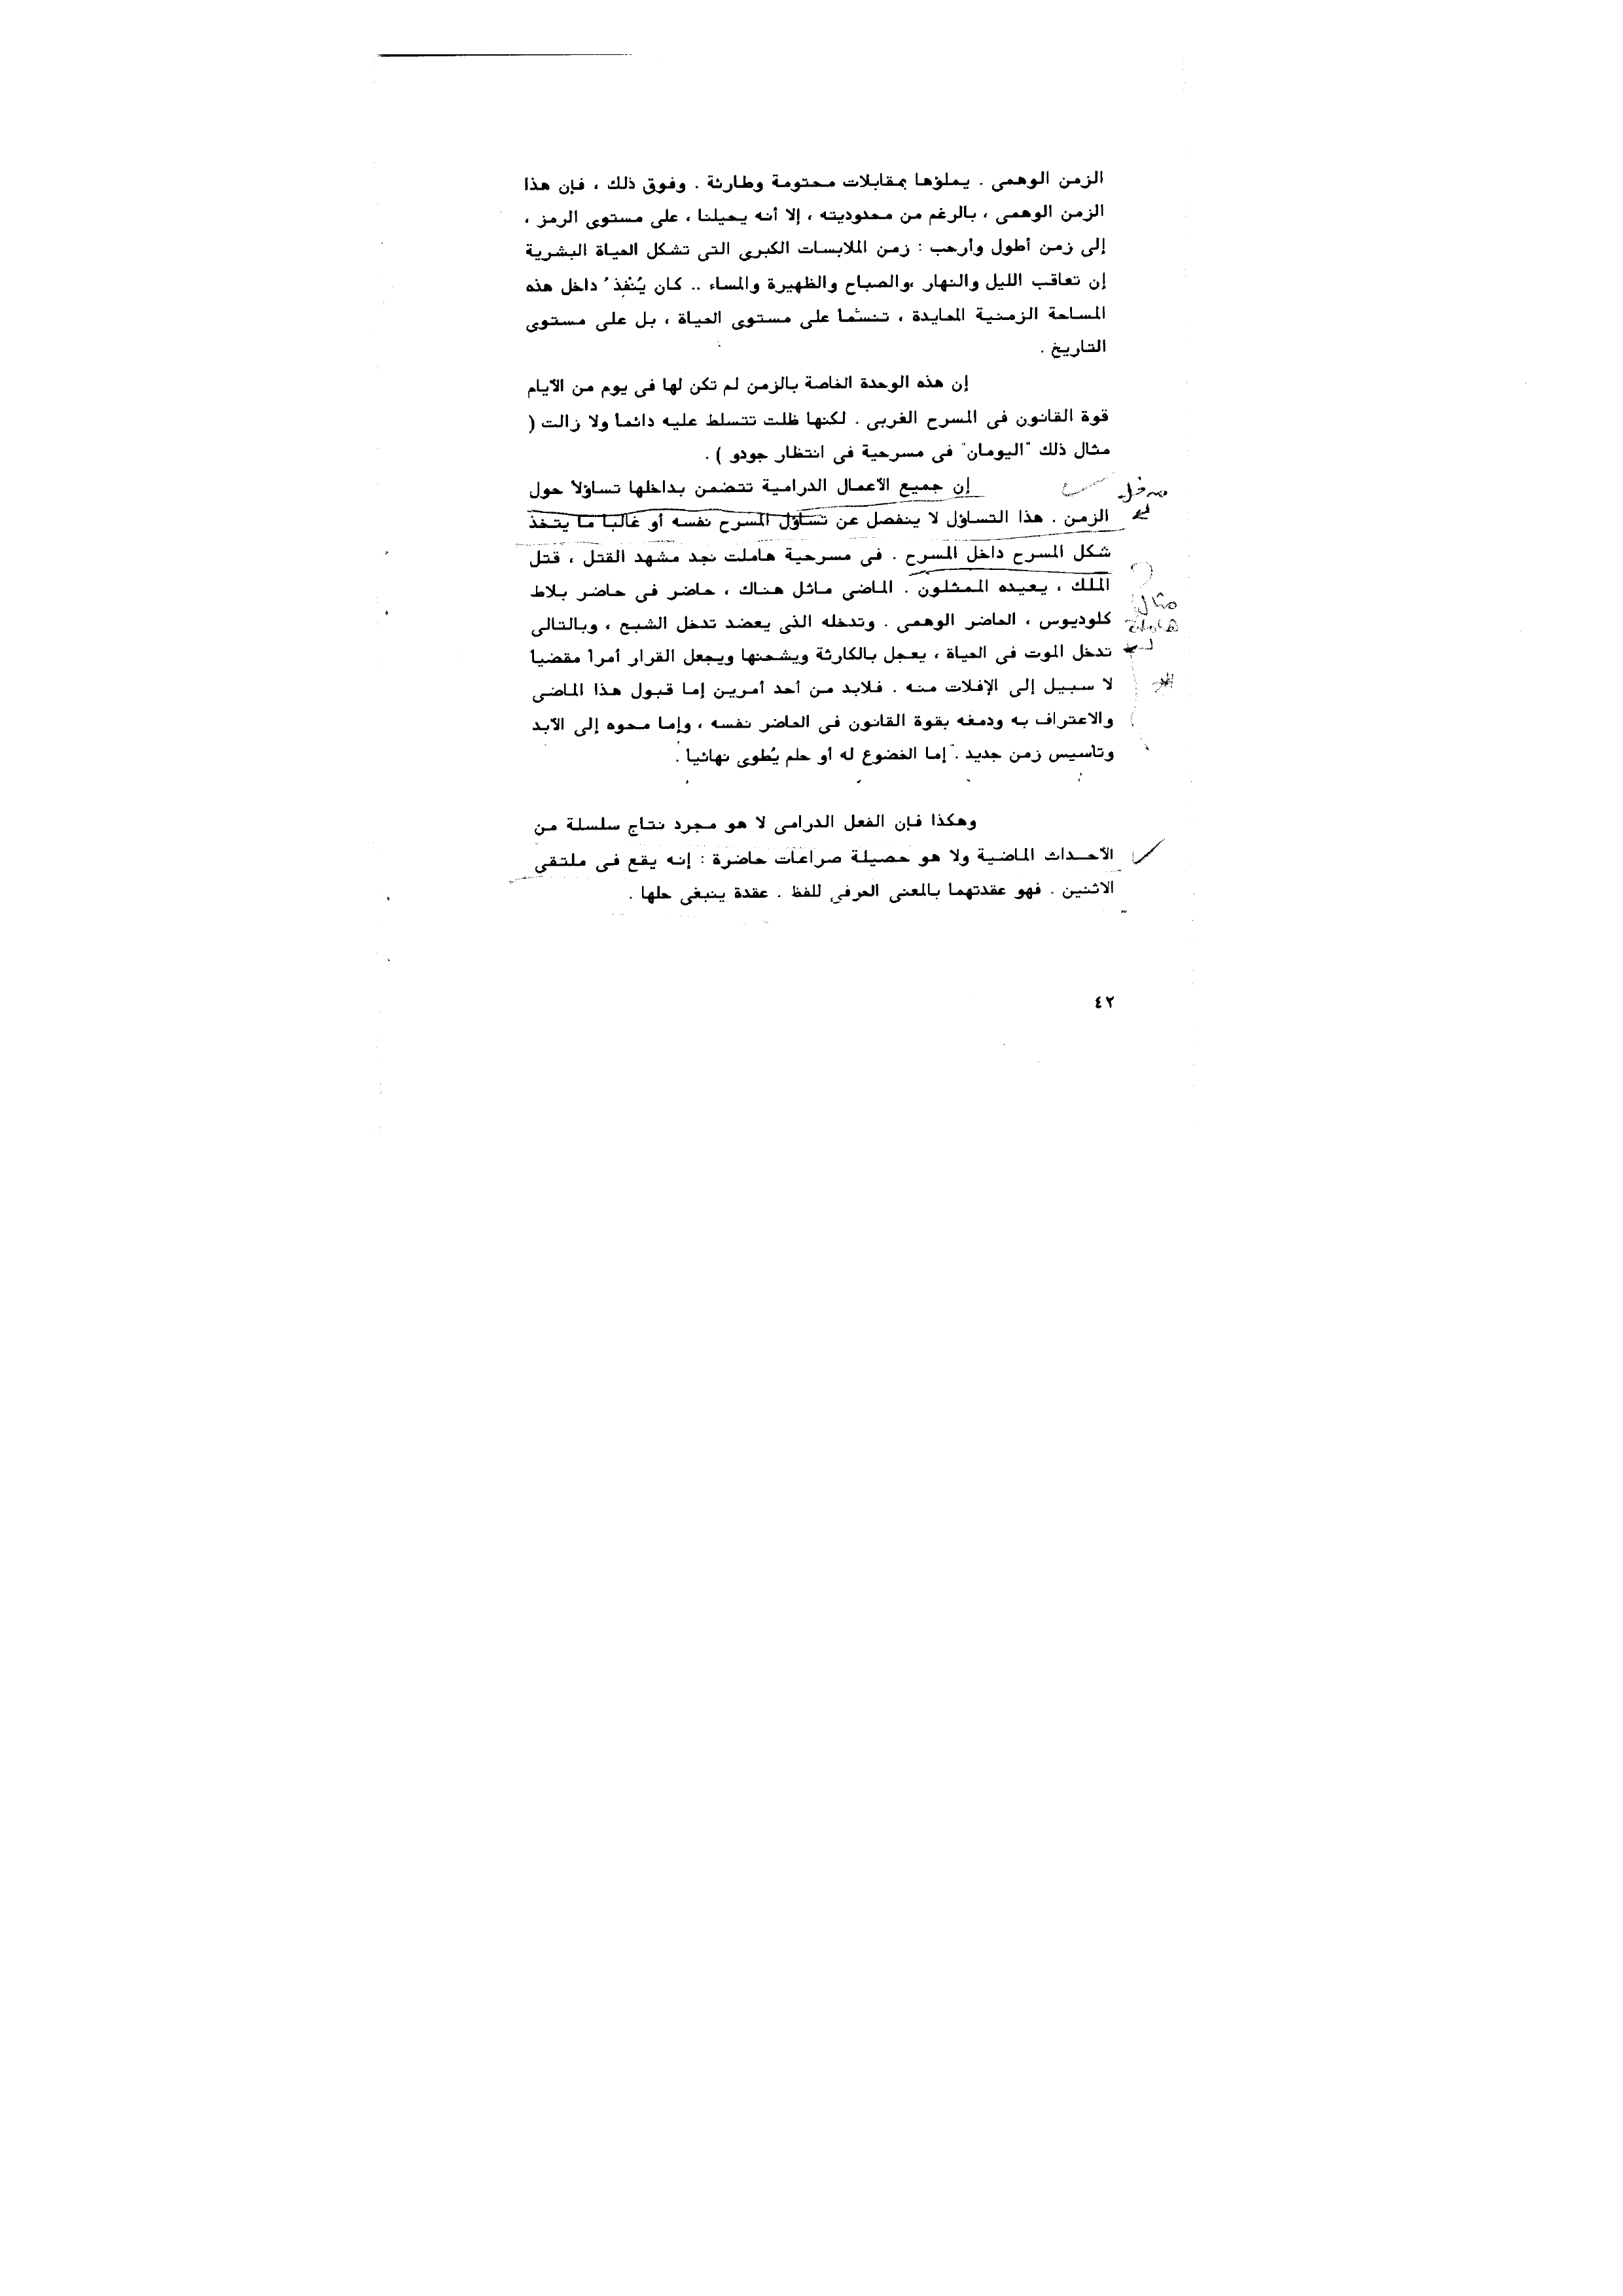 الزمن الوهمى . يملؤها بمقابلات محتومة وطارئة . وفوق ذلك ، فإن هذا
الزمن الوهمى ، بالرغم من محدوديته ، إلا أنه يحيلنا ، على مستوى الرمز ،
إلى زمن أطول وأرحب : زمن الملابسات الكبرى التى تشكل الحياة البشرية
إن تعاقب الليل والنهار ،والصباح والظهيرة والمساء .. كان يُنْفِذُ داخل هذه
المساحة الزمنية المحايدة ، على مستوى الحياة ، بل على مستوى
التاريخ .
إن هذه الوحدة الخاصة بالزمن لم تكن لها فى يوم من الأيام
قوة القانون فى المسرح الغربى . لكنها ظلت تتسلط عليه دائماً ولا زالت (
مثال ذلك "اليومان" فى مسرحية فى انتظار جودو ) .
إن جميع الأعمال الدرامية تتضمن بداخلها تساؤلاً حول
الزمن . هذا التساؤل لا ينفصل عن تساؤل المسرح نفسه أو غالباً ما يتخذ
شكل المسرح داخل المسرح . فى مسرحية هاملت نجد مشهد القتل ، قتل
الملك ، يعيده الممثلون . الماضى ماثل هناك ، حاضر فى حاضر بلاط
مثال
كلوديوس ، الحاضر الوهمى . وتدخله الذى يعضد تدخل الشبح ، وبالتالى
هاملت
تدخل الموت فى الحياة ، يعجل بالكارثة ويشحنها ويجعل القرار أمراً مقضياً
لا سبيل إلى الإفلات منه . فلابد من أحد أمرين إما قبول هذا الماضى
والاعتراف به ودمغه بقوة القانون فى الحاضر نفسه ، وإما محوه إلى الأبد
وتأسيس زمن جديد . إما الخضوع له أو حلم يُطوى نهائياً .
وهكذا فإن الفعل الدرامى لا هو مجرد نتاج سلسلة من
الأحداث الماضية ولا هو حصيلة صراعات حاضرة : إنه يقع فى ملتقى
الاثنين . فهو عقدتهما بالمعنى الحرفى للفظ . عقدة ينبغى حلها .
٤٢